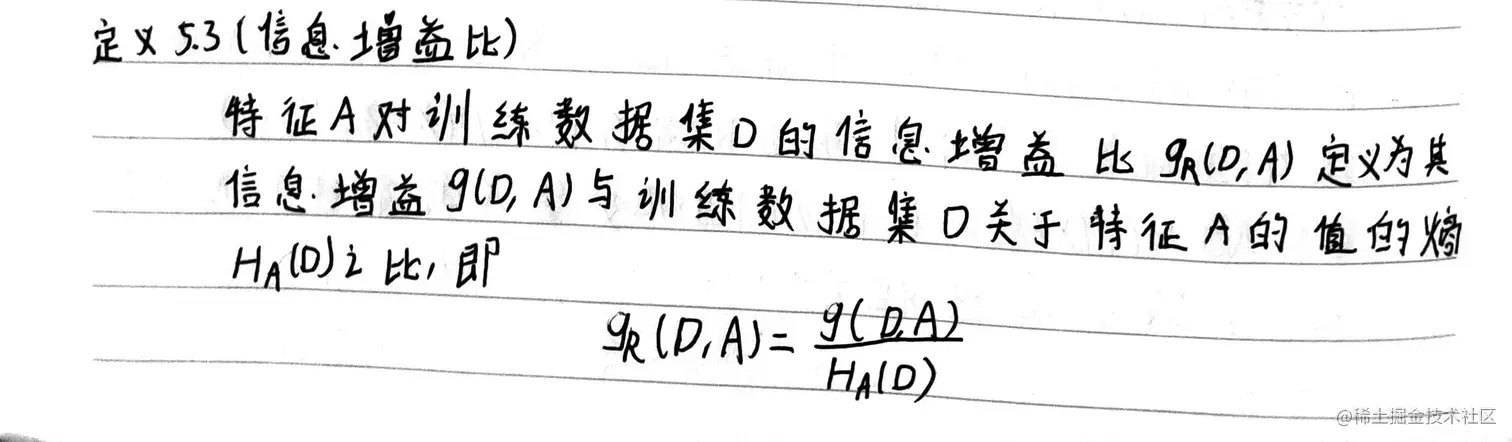 定义 5.3 (信息增益比)
特征A对训练数据集D的信息增益比 g_R(D,A) 定义为其
信息增益 g(D,A) 与训练数据集D关于特征A的值的熵
H_A(D)之比，即
g_R(D,A) = g(D,A) / H_A(D)
@稀土掘金技术社区